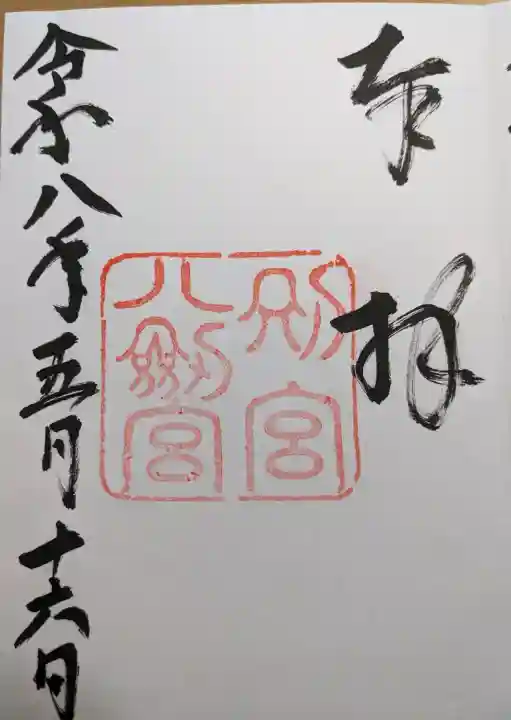 奉拝
別宮
八剱宮
令和八年五月十六日